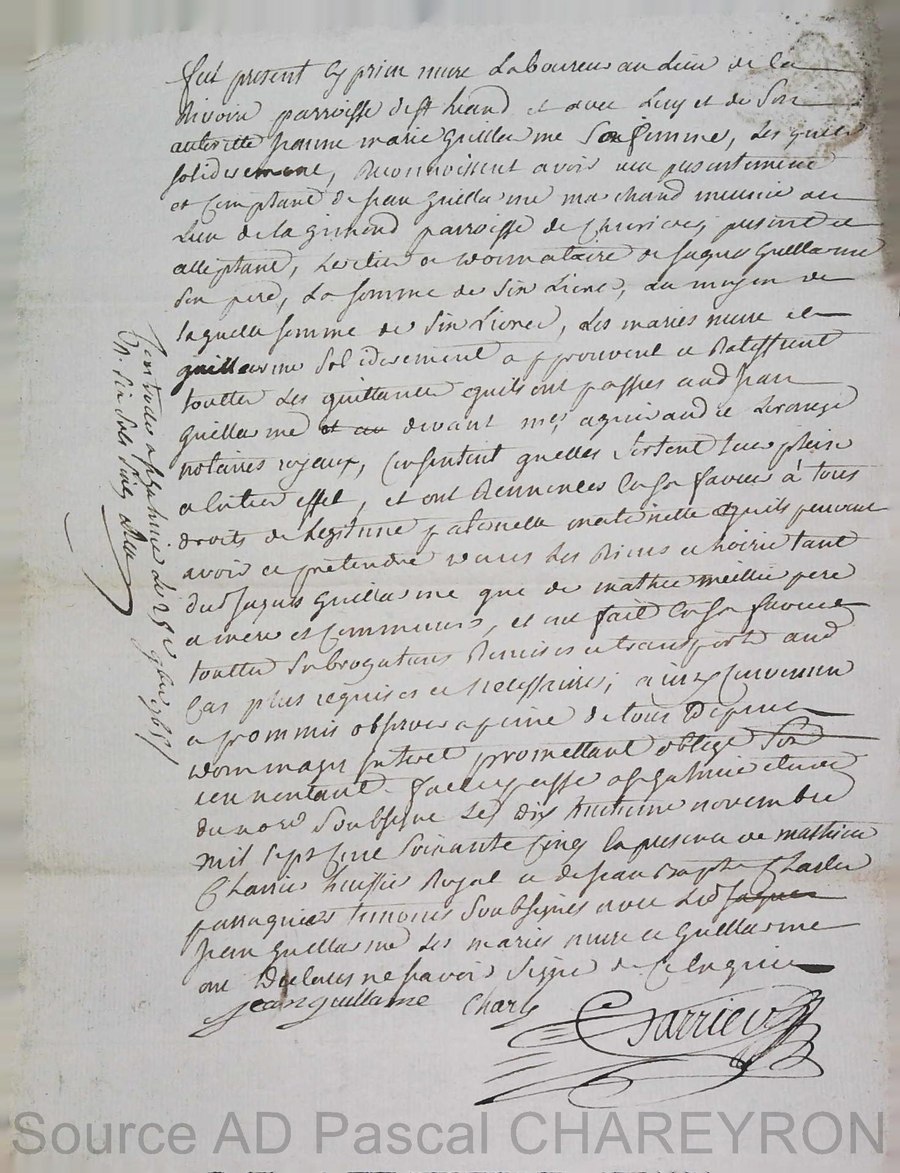 fut present cyprien mure Laboureur au Lieu de la
Rivoire parroisse d'St heand et avec Luy et de Son
autoritté Jeanne marie Guillaume Sa femme, Les quels
solidairement, Reconnoissent avoir reçu presentement
et comptant de Jean Guillaume marchand meunier au
Lieu de la gimond parroisse de Chevrieres, present et
acceptant, heritier et donnataire de Jaques Guillaume
Son pere, La somme de Six Livres, au moyen de
laquelle somme de Six Livres, Les maries mure et
guillaume Solidairement approuvent et Ratiffient
touttes Les quittances quils ont passées aud Jean
Guillaume devant mes
notaires royaux, Consentent quelles Sortent Leur plein
et entier effet, et ont Renoncés En Sa faveur à tous
droits de Legitime paternelle maternelle quils peuvent
avoir et pretendre Sur Les Biens et hoirie tant
dud Jaques Guillaume que de mathie meillier pere
et mere Communs, et ont fait En Sa faveur
touttes Subrogations Remises et transports aud
Cas plus requises et Necessaires; ainsy Convenu
et prommis observer a peine de tous Depens
dommages Interet promettant obligé Son
renonçant. fait et passé a St Galmier etude
du no.re Soubsigné Le dix huitieme novembre
mil Sept Cent Soixante Cinq En presence de mathieu
Charrier huissier Royal et de Jean Bapte Charles
temoins Soubsignés avec Led Jaques
Jean Guillaume Les maries mure et Guillaume
ont Declarés ne Savoir Signer de Ce Enquis
jean guillame Charles Charrier
Controllé a St galmier Le 25e 9bre 1765
R. Six Sols Six d.